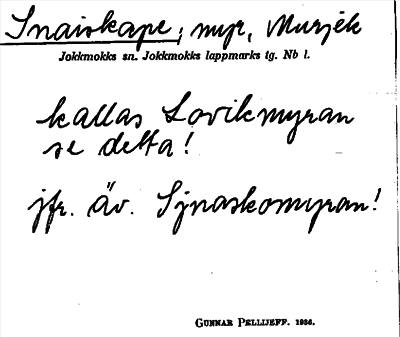 Snaiskape, myr, Murjek
Jokkmokks sn. Jokkmokks lappmarks tg. Nb l.
kallas Lovikmyran
se detta!
jfr. äv. Sjnaskomyran!
GUNNAR PELLIJEFF. 1936.